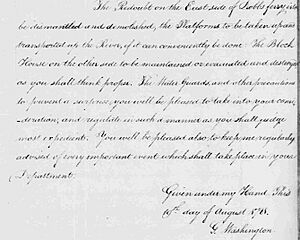 The Redoubt on the East side of Dobbs ferry, is to
be dismantled and demolished, the Platforms to be taken up and
transported up the River, if it can conveniently be done. The Block
House on the other side to be maintained or evacuated and destroyed
as you shall think proper. The Water Guards, and other precautions
to prevent a surprise, you will be pleased to take into your consi-
deration, and regulate in such a manner as you shall judge
most expedient. You will be pleased also, to keep me regularly
advised of every important event which shall take place in your
Department.
Given under my Hand This
19th day of August 1781.
G. Washington